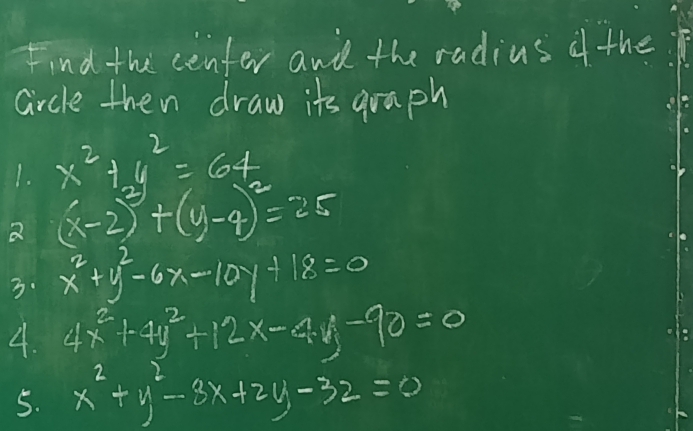 Find the center and the radius of the
Circle then draw its graph
1. x² + y² = 64
2 (x-2)² + (y-4)² = 25
3. x² + y² - 6x - 10y + 18 = 0
4. 4x² + 4y² + 12x - 4y - 90 = 0
5. x² + y² - 8x + 2y - 32 = 0